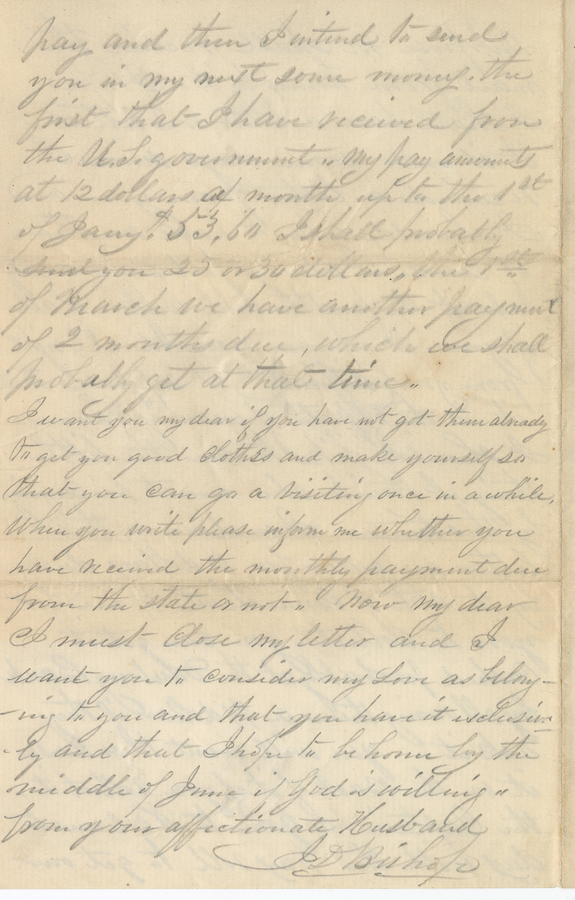 pay and then I intend to send
you in my next some money. the
first that I have received from
the U.S. government " My pay amounts
at 12 dollars a month up to the 1st
of Jany. $53,60 I shall probably
send you 25 or 30 dollars, the 1st
of March we have another payment
of 2 months due, which we shall
probably get at that time "
I want you my dear if you have not got them already
to get you good clothes and make yourself so
that you can go a visiting once in a while,
When you write please inform me whether you
have received the monthly payment due
from the state or not " Now my dear
I must close my letter and I
want you to consider my Love as belong-
-ing to you and that you have it exclusive-
-ly and that I hope to be home by the
middle of June if God is willing "
from your affectionate Husband
J D Bishop